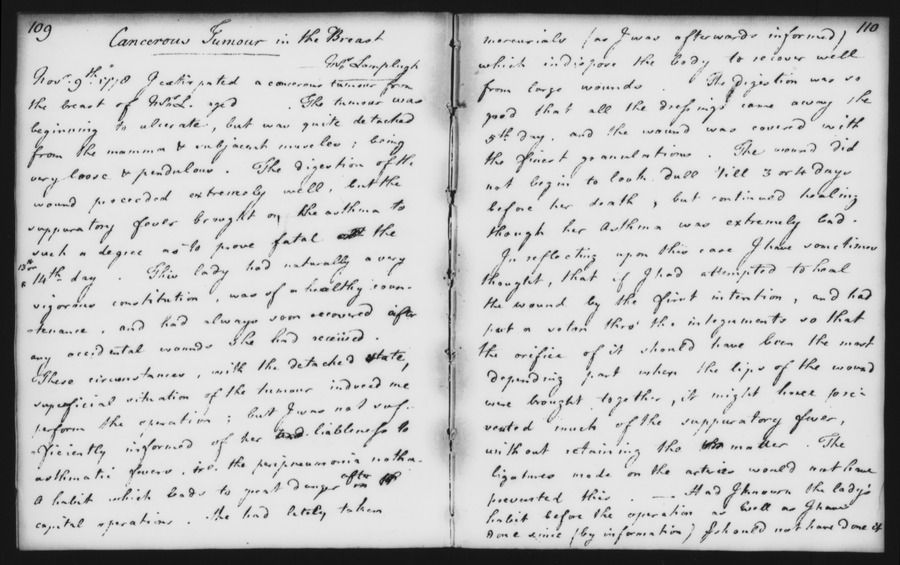 109
Cancerous Tumour in the Breast
Mrs. Lamplugh
Novr. 9th. 1778 I extirpated a cancerous tumour from
the breast of Mrs. L. aged . The tumour was
beginning to ulcerate, but was quite detached
from the mamma & subjacent muscles; being
very loose & pendulous. The digestion of the
wound proceeded extremely well, but the
suppuratory fever brought on the asthma to
such a degree as to prove fatal the
13th or
14th day. This lady had naturally a very
vigorous constitution, was of a healthy coun-
-tenance, and had always soon recovered after
any accidental wounds she had received.
These circumstances, with the detached state,
superficial situation of the tumour induced me
perform the operation; but I was not suf-
-ficiently informed of her liableness to
asthmatic fevers, the peripneumonia notha.
A habit which leads to great danger after
capital operations. She had lately taken
110
mercurials (as I was afterwards informed)
which indispose the body to recover well
from large wounds. The digestion was so
good that all the dressings came away the
5th day, and the wound was covered with
the finest granulations. The wound did
not begin to look dull 'till 3 or 4 days
before her death, but continued healing
though her Asthma was extremely bad.
In reflecting upon this case I have sometimes
thought, that if I had attempted to heal
the wound by the first intention, and had
put a seton thro' the integuments so that
the orifice of it should have been the most
depending part when the lips of the wound
were brought together, it might have pre-
vented much of the suppuratory fever,
without retaining the matter. The
ligatures made on the arteries would not have
prevented this. — Had I known the lady's
habit before the operation as well as I have
done since (by information) I should not have done it